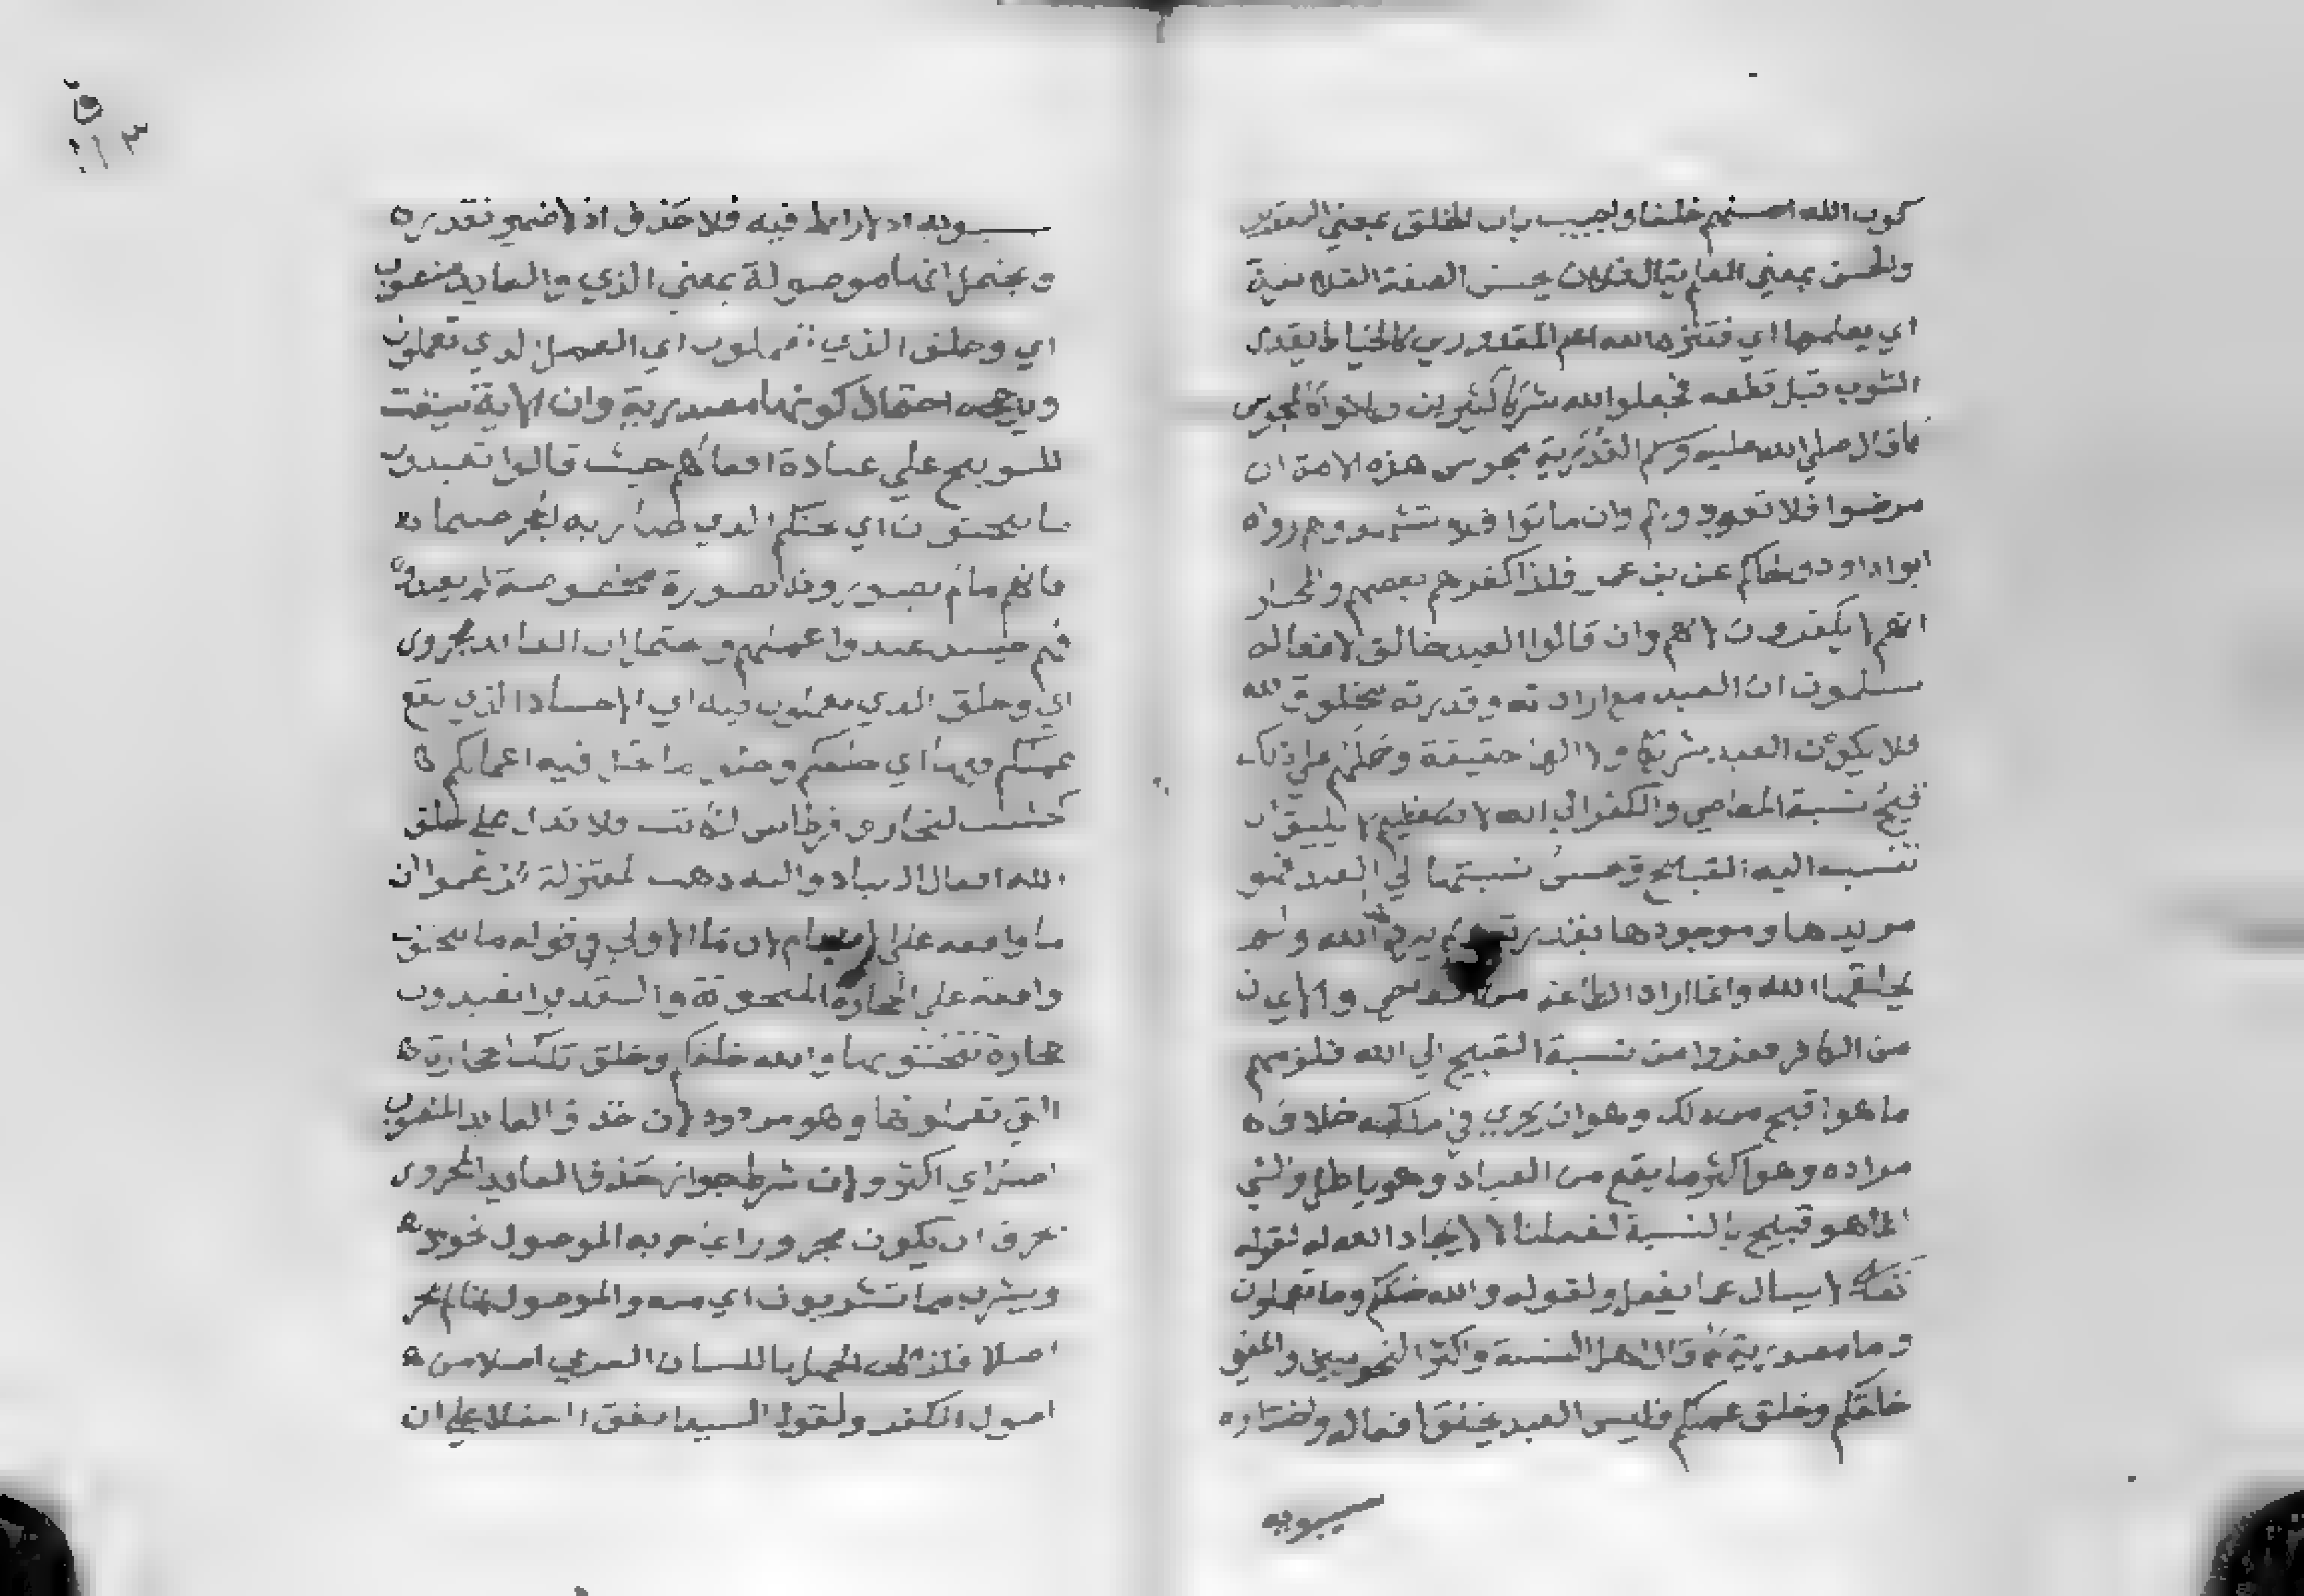 كون الله احسنهم خلقا واجيب بان الخلق بمعني التقدير
والحسن بمعني العلم يقال فلان يحسن الصنعة الفلانية
اي يعلمها اي فتنزه الله اعلم المقدرين كالخياط يقدر
الثوب قبل قطعه فجعلوا لله شركا كثيرين
قال صلي الله عليه وسلم القدرية مجوس هذه الامة ان
مرضوا فلا تعودوهم وان ماتوا فلا تشهدوهم رواه
ابو داود والحاكم عن بن عمر فلذا كفرهم بعضهم والمختار
انهم لا يكفرون لانهم وان قالوا العبد خالق لافعاله
يسلمون ان العبد مع ارادته وقدرته مخلوق لله
فلا يكون العبد شريكا ولا الها حقيقة وحملهم علي ذلك
قبح نسبة المعاصي والكفر الي الله لا يليق ان
تنسب اليه القبايح وحسن نسبتها الي العبد فهو
مريدها وموجودها بقدرته الله ولم
يخلقها الله وانما اراد الطاعة من العاصي والايمان
من الكافر ففروا من نسبة القبيح الي الله فلزمهم
ما هو اقبح من ذلك وهو ان يجري في ملكه خلاف
مراده وهو اكثر ما يقع من العباد وهو باطل والشي
انما هو قبيح بالنسبة لفعلنا لا لايجاد الله له لقوله
تعالي لا يسال عما يفعل ولقوله والله خلقكم وما تعملون
وما مصدرية كما قال اهل السنة واكثر النحويين والمعني
خلقكم وخلق عملكم فليس العبد يخلق افعاله واختاره
سيبويه
سيبويه اذ لا رابط فيه فلا حذف اذ لا ضمير تقديره
ويحتمل انها موصولة بمعني الذي والعايد منصوب
اي وخلق الذي تعملون اي العمل الذي تعملون
احتمال كونها مصدرية وان الاية سيقت
للتوبيخ علي عبادة افعالهم حيث قالوا تعبدون
ما تنحتون اي نحتكم الذي صار به الحجر صنما
فانهم ما لم يصوروها بصورة مخصوصة لم يعبدوه
فهم حينيذ عبدوا عملهم وحتمل ان العايد مجرور
اي وخلق الذي تعملون فيه اي الاجساد الذي يقع
عملكم فيها اي خلقكم وخلق ما حل فيه اعمالكم
كخشب لنجار وقرطاس لكاتب فلا تدل علي خلق
الله افعال العباد واليه ذهب المعتزلة زعموا ان
ما واقعة علي الاصنام لان ما الاولي في قوله ما تنحتون
واقعة علي الحجارة المنحوتة والتقدير اتعبدون
حجارة تنحتونها والله خلقكم وخلق تلك الحجارة
التي تعملونها وهو مردود لان حذف العايد المنصوب
اي اكثر ولان شرط جواز حذف العايد المجرور
بحرف ان يكون مجرورا بما جر به الموصول نحو
ويشرب مما تشربون اي منه والموصول هنا لم يجر
اصلا فلذا كان الجهل باللسان العربي اصلا من
اصول الكفر ولقول السيد اتفق العقلا علي ان